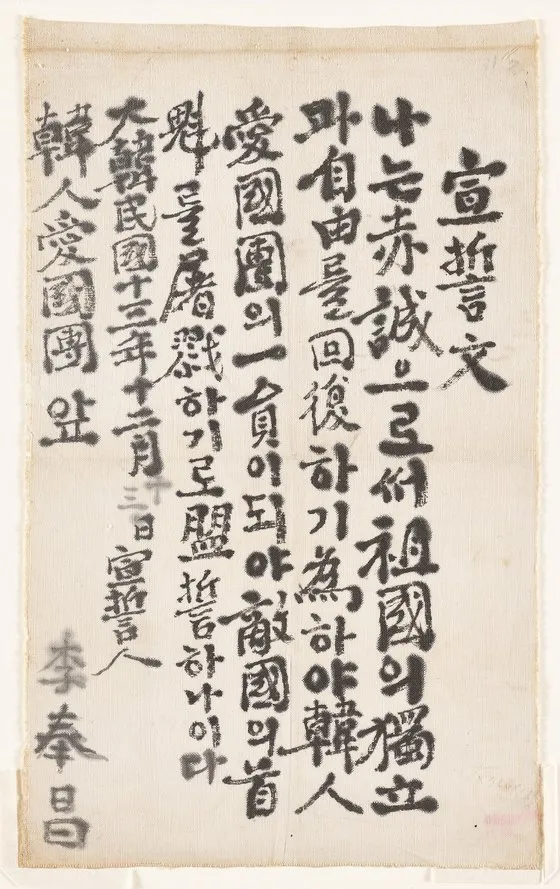 宣誓文
나는赤誠으로써祖國의獨立
과自由를回復하기為하야韓人
愛國團의一員이되야敵國의首
魁를屠戮하기로盟誓하나이다
大韓民國十三年十二月十三日宣誓人
韓人愛國團앞 李奉昌